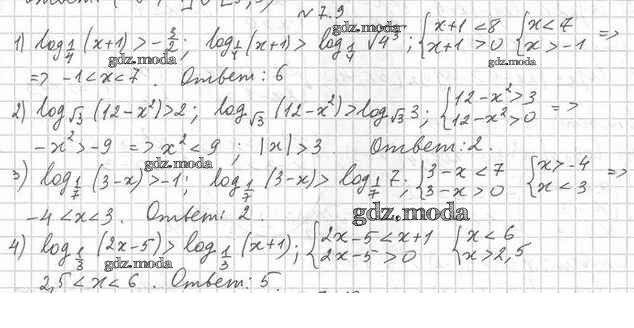 N 7.9
1) log_{1/4} (x+1) > -3/2; log_{1/4} (x+1) > log_{1/4} √4³; {x+1<8 x+1>0 {x<7 x>-1 =>
=> -1<x<7. Ответ: 6
2) log_{√3} (12-x²)>2; log_{√3} (12-x²)>log_{√3} 3; {12-x²>3 12-x²>0 =>
-x²>-9 => x²<9; |x|>3 Ответ: 2.
3) log_{1/7} (3-x)>-1; log_{1/7} (3-x)> log_{1/7} 7; {3-x<7 3-x>0 {x>-4 x<3 =>
-4<x<3. Ответ: 2
4) log_{1/3} (2x-5)>log_{1/3} (x+1); {2x-5<x+1 2x-5>0 {x<6 x>2,5
2,5<x<6. Ответ: 5.
gdz.moda
gdz.moda
gdz.moda
gdz.moda
gdz.moda
gdz.moda
gdz.moda